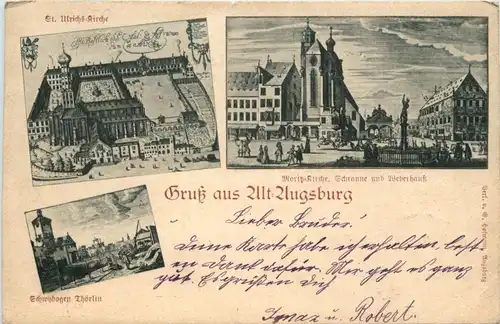 St. Ulrichs-Kirche
Moritz-Kirche, Schranne und Weberhauß
Gruß aus Alt-Augsburg
Schwybogen Thörlin
Verl. v. Augsburg
Lieber Bruder!
Deine Karte habe ich erhalten, best
en Dank dafür. Mir geht es ganz
gut. Es grüßen dich
Ignaz u. Robert.